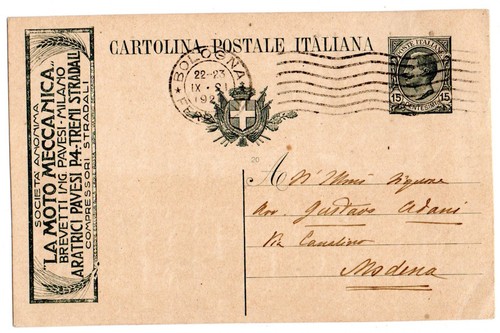 CARTOLINA POSTALE ITALIANA
SOCIETÀ ANONIMA
"LA MOTO MECCANICA"
BREVETTI ING. PAVESI-MILANO
ARATRICI PAVESI P4-TRENI STRADALI
COMPRESSORI STRADALI
BOLOGNA
22-23
IX
192
POSTE ITALIANE
15 CENTESIMI 15
20
All' Signore
Avv. Gustavo Adani
Via Canalino
Modena